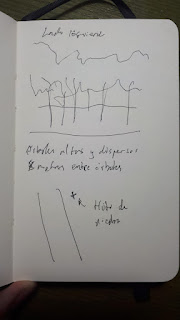 Lado izquierdo
árboles altos y dispersos
& matas entre árboles
Hito de
piedra